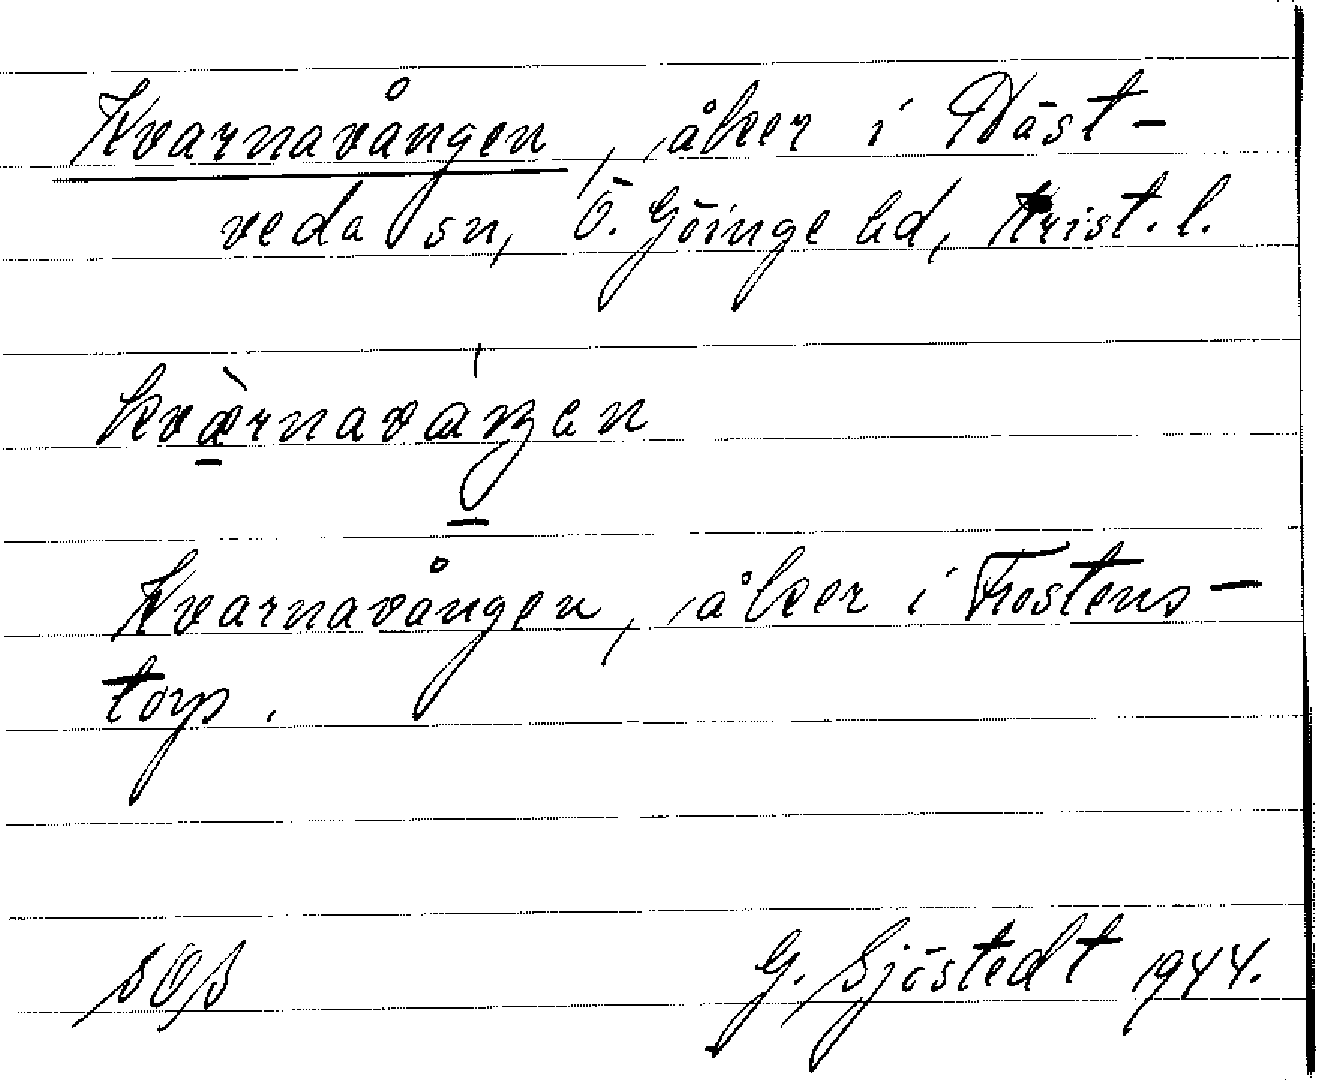 Kvarnavången, åker i Näst-
veda sn, Ö. Göinge hd, Krist. l.
Kvarnavången, åker i Frostens-
torp.
G. Sjöstedt 1944.